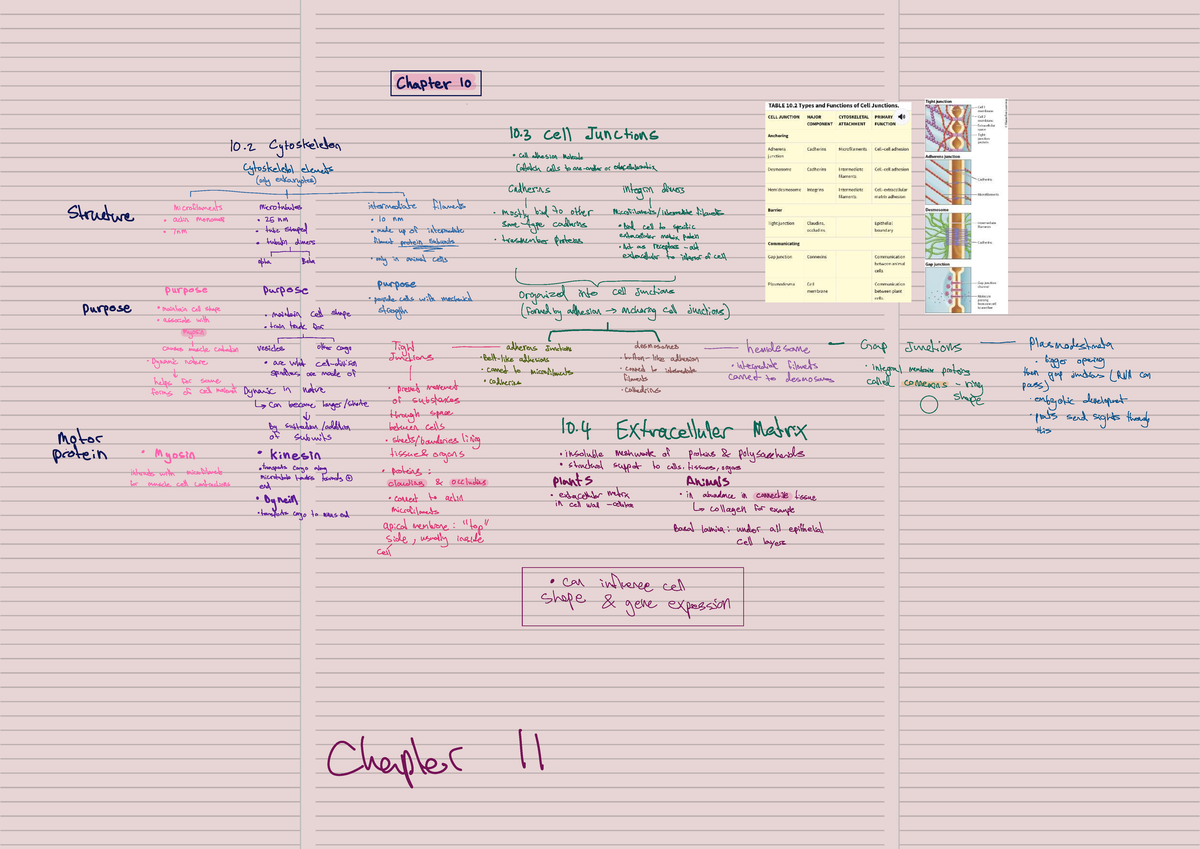 Chapter 10
10.2 Cytoskeleton
Cytoskeletal elements
(only eukaryotes)
Structure
microfilaments
• actin monomers
• 7nm
microtubules
• 25 nm
• tube shaped
• tubulin dimers
alpha Beta
intermediate filaments
• 10 nm
• made up of intermediate
filament protein subunits
• only in animal cells
Purpose
purpose
• maintain cell shape
• associate with
myosin
cause muscle contraction
• Dynamic nature
helps for some
forms of cell movement
purpose
• maintain cell shape
• train track for
vesicles other cargo
• are what cell-division
spindles are made of
Dynamic in nature
↳ Can become longer/shorter
By subtraction/addition
of subunits
purpose
• provide cells with mechanical
strength
Motor
protein
• Myosin
interacts with microfilaments
for muscle cell contractions
• Kinesin
• transports cargo along
microtubule tracks towards ⊕
end
• Dynein
• transports cargo to minus end
10.3 Cell Junctions
• Cell adhesion molecule
(attach cells to one-another or extracellular matrix
Cadherins
• mostly bind to other
same-type cadherins
• transmembrane proteins
integrin dimers
Microfilaments/intermediate filaments
• Bind cell to specific
extracellular matrix protein
• Act as receptors - out
extracellular to interior of cell
Organized into cell junctions
(formed by adhesion → anchoring cell junctions)
Tight
Junctions
• prevent movement
of substances
through space
between cells
• sheets/boundaries lining
tissues & organs
• proteins:
claudins & occludins
• connect to actin
microfilaments
apical membrane: "top"
side, usually inside
cell
adherens junctions
• Belt-like adhesions
• connect to microfilaments
• cadherins
desmosomes
• button-like adhesion
• connect to intermediate
filaments
• Cadherins
hemidesosome
• intermediate filaments
connect to desmosoms
Gap Junctions
• integral membrane proteins
called connexins - ring
shape
Plasmodesmata
• bigger opening
than gap junctions (RNA can
pass)
• embryotic development
• plants send signals through
this
TABLE 10.2 Types and Functions of Cell Junctions.
CELL JUNCTION MAJOR COMPONENT CYTOSKELETAL ATTACHMENT PRIMARY FUNCTION
Anchoring
Adherens junction Cadherins Microfilaments Cell-cell adhesion
Desmosome Cadherins Intermediate filaments Cell-cell adhesion
Hemidesmosome Integrins Intermediate filaments Cell-extracellular matrix adhesion
Barrier
Tight junction Claudins, occludins Epithelial boundary
Communicating
Gap junction Connexins Communication between animal cells
Plasmodesma Cell membrane Communication between plant cells
Tight junction
Cell 1 membrane
Cell 2 membrane
Extracellular space
Tight junction protein
Adherens junction
Cadherins
Microfilaments
Desmosome
Intermediate filaments
Cadherins
Gap junction
Gap junction channel
10.4 Extracelluler Matrix
• insoluble meshwork of proteins & polysaccharids
• structural support to cells, tissues, organs
Plants
• extracellular matrix
in cell wall
Animals
• in abundance in connective tissue
↳ collagen for example
Basal lamina: under all epithelial
cell layers
• can influence cell
shape & gene expression
Chapter 11